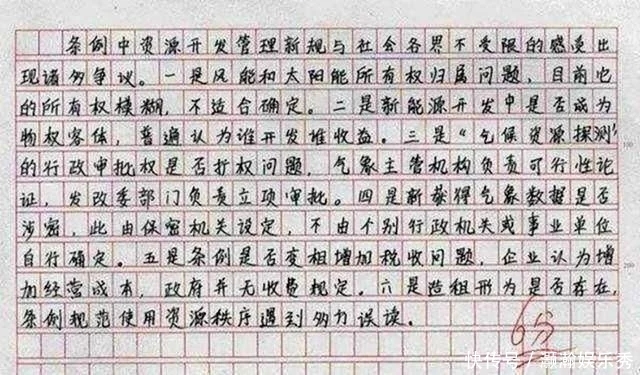 条例中资源开发管理新规与社会各界不受限的感受出
现诸多争议。一是风能和太阳能所有权归属问题，目前它
的所有权模糊，不适合确定。二是新能源开发中是否成为
物权客体，普遍认为谁开发谁收益。三是“气候资源探测”
的行政审批权是否扩权问题，气象主管机构负责可行性论
证，发改委部门负责立项审批。四是新获得气象数据是否
涉密，此由保密机关设定，不由个别行政机关或事业单位
自行确定。五是条例是否变相增加税收问题，企业认为增
加经营成本，政府并无收费规定。六是造租形为是否存在，
条例规范使用资源秩序遇到多方误读。
100
200
6分
快传号/瀚瀚娱乐秀